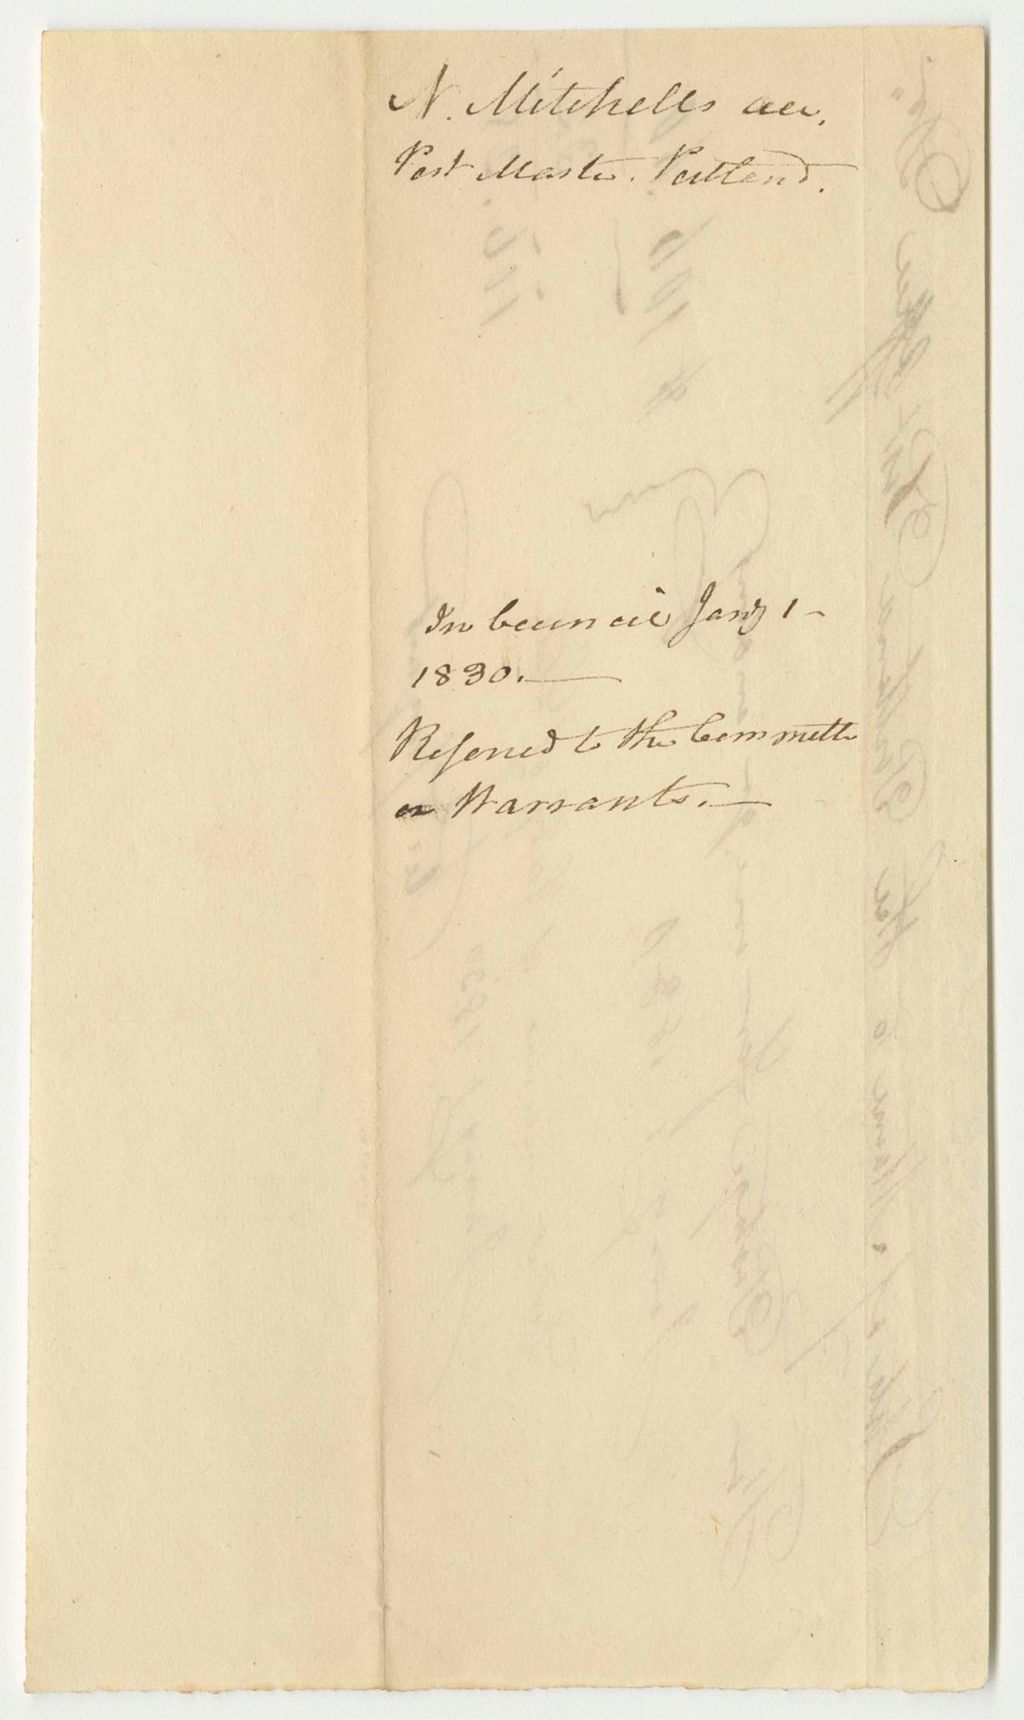 N. Mitchells acc.
Post Master. Portland.
In Council Jany 1 -
1830. —
Referred to the Committe
on Warrants. —